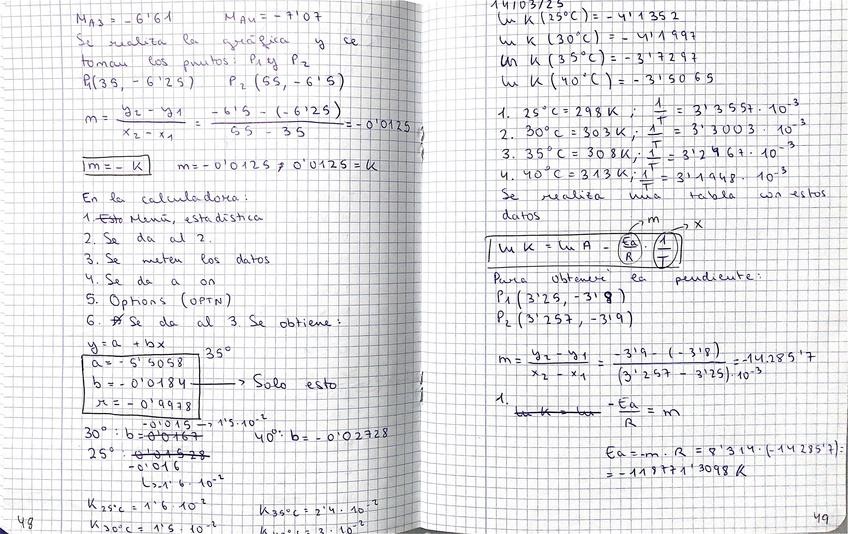 M_A3 = -6'61 M_A4 = -7'07
Se realiza la gráfica y se
toman los puntos: P1 y P2
P1(35, -6'25) P2(55, -6'5)
m = (y2 - y1)/(x2 - x1) = (-6'5 - (-6'25))/(55 - 35) = -0'0125
m = - K m = -0'0125 ; 0'0125 = K
En la calculadora:
1. Esto Menú, estadística
2. Se da al 2.
3. Se meten los datos
4. Se da a on
5. Options (OPTN)
6. Se da al 3. Se obtiene:
y = a + bx
35°
a = -5'5058
b = -0'0184 → Solo esto
r = -0'9978
-0'015 → 1'5·10⁻²
30°: b = 0'0167 40°: b = -0'02728
25°: 0'01528
-0'016
↳ 1'6·10⁻²
K25°C = 1'6·10⁻² K35°C = 2'4·10⁻²
K30°C = 1'5·10⁻²
48
14/03/25
ln K (25°C) = -4'1352
ln K (30°C) = -4'1997
ln K (35°C) = -3'7297
ln K (40°C) = -3'5065
1. 25°C = 298 K ; 1/T = 3'3557·10⁻³
2. 30°C = 303 K ; 1/T = 3'3003·10⁻³
3. 35°C = 308 K ; 1/T = 3'2467·10⁻³
4. 40°C = 313 K ; 1/T = 3'1948·10⁻³
Se realiza una tabla con estos
datos
m x
ln K = ln A - Ea/R · 1/T
Para obtener la pendiente:
P1 (3'25, -3'8)
P2 (3'257, -3'9)
m = (y2 - y1)/(x2 - x1) = (-3'9 - (-3'8))/((3'257 - 3'25)·10⁻³) = -14.285'7
1. ln K = ln -Ea/R = m
Ea = -m · R = 8'314 · (-14285'7) =
= -118771'3098 K
49